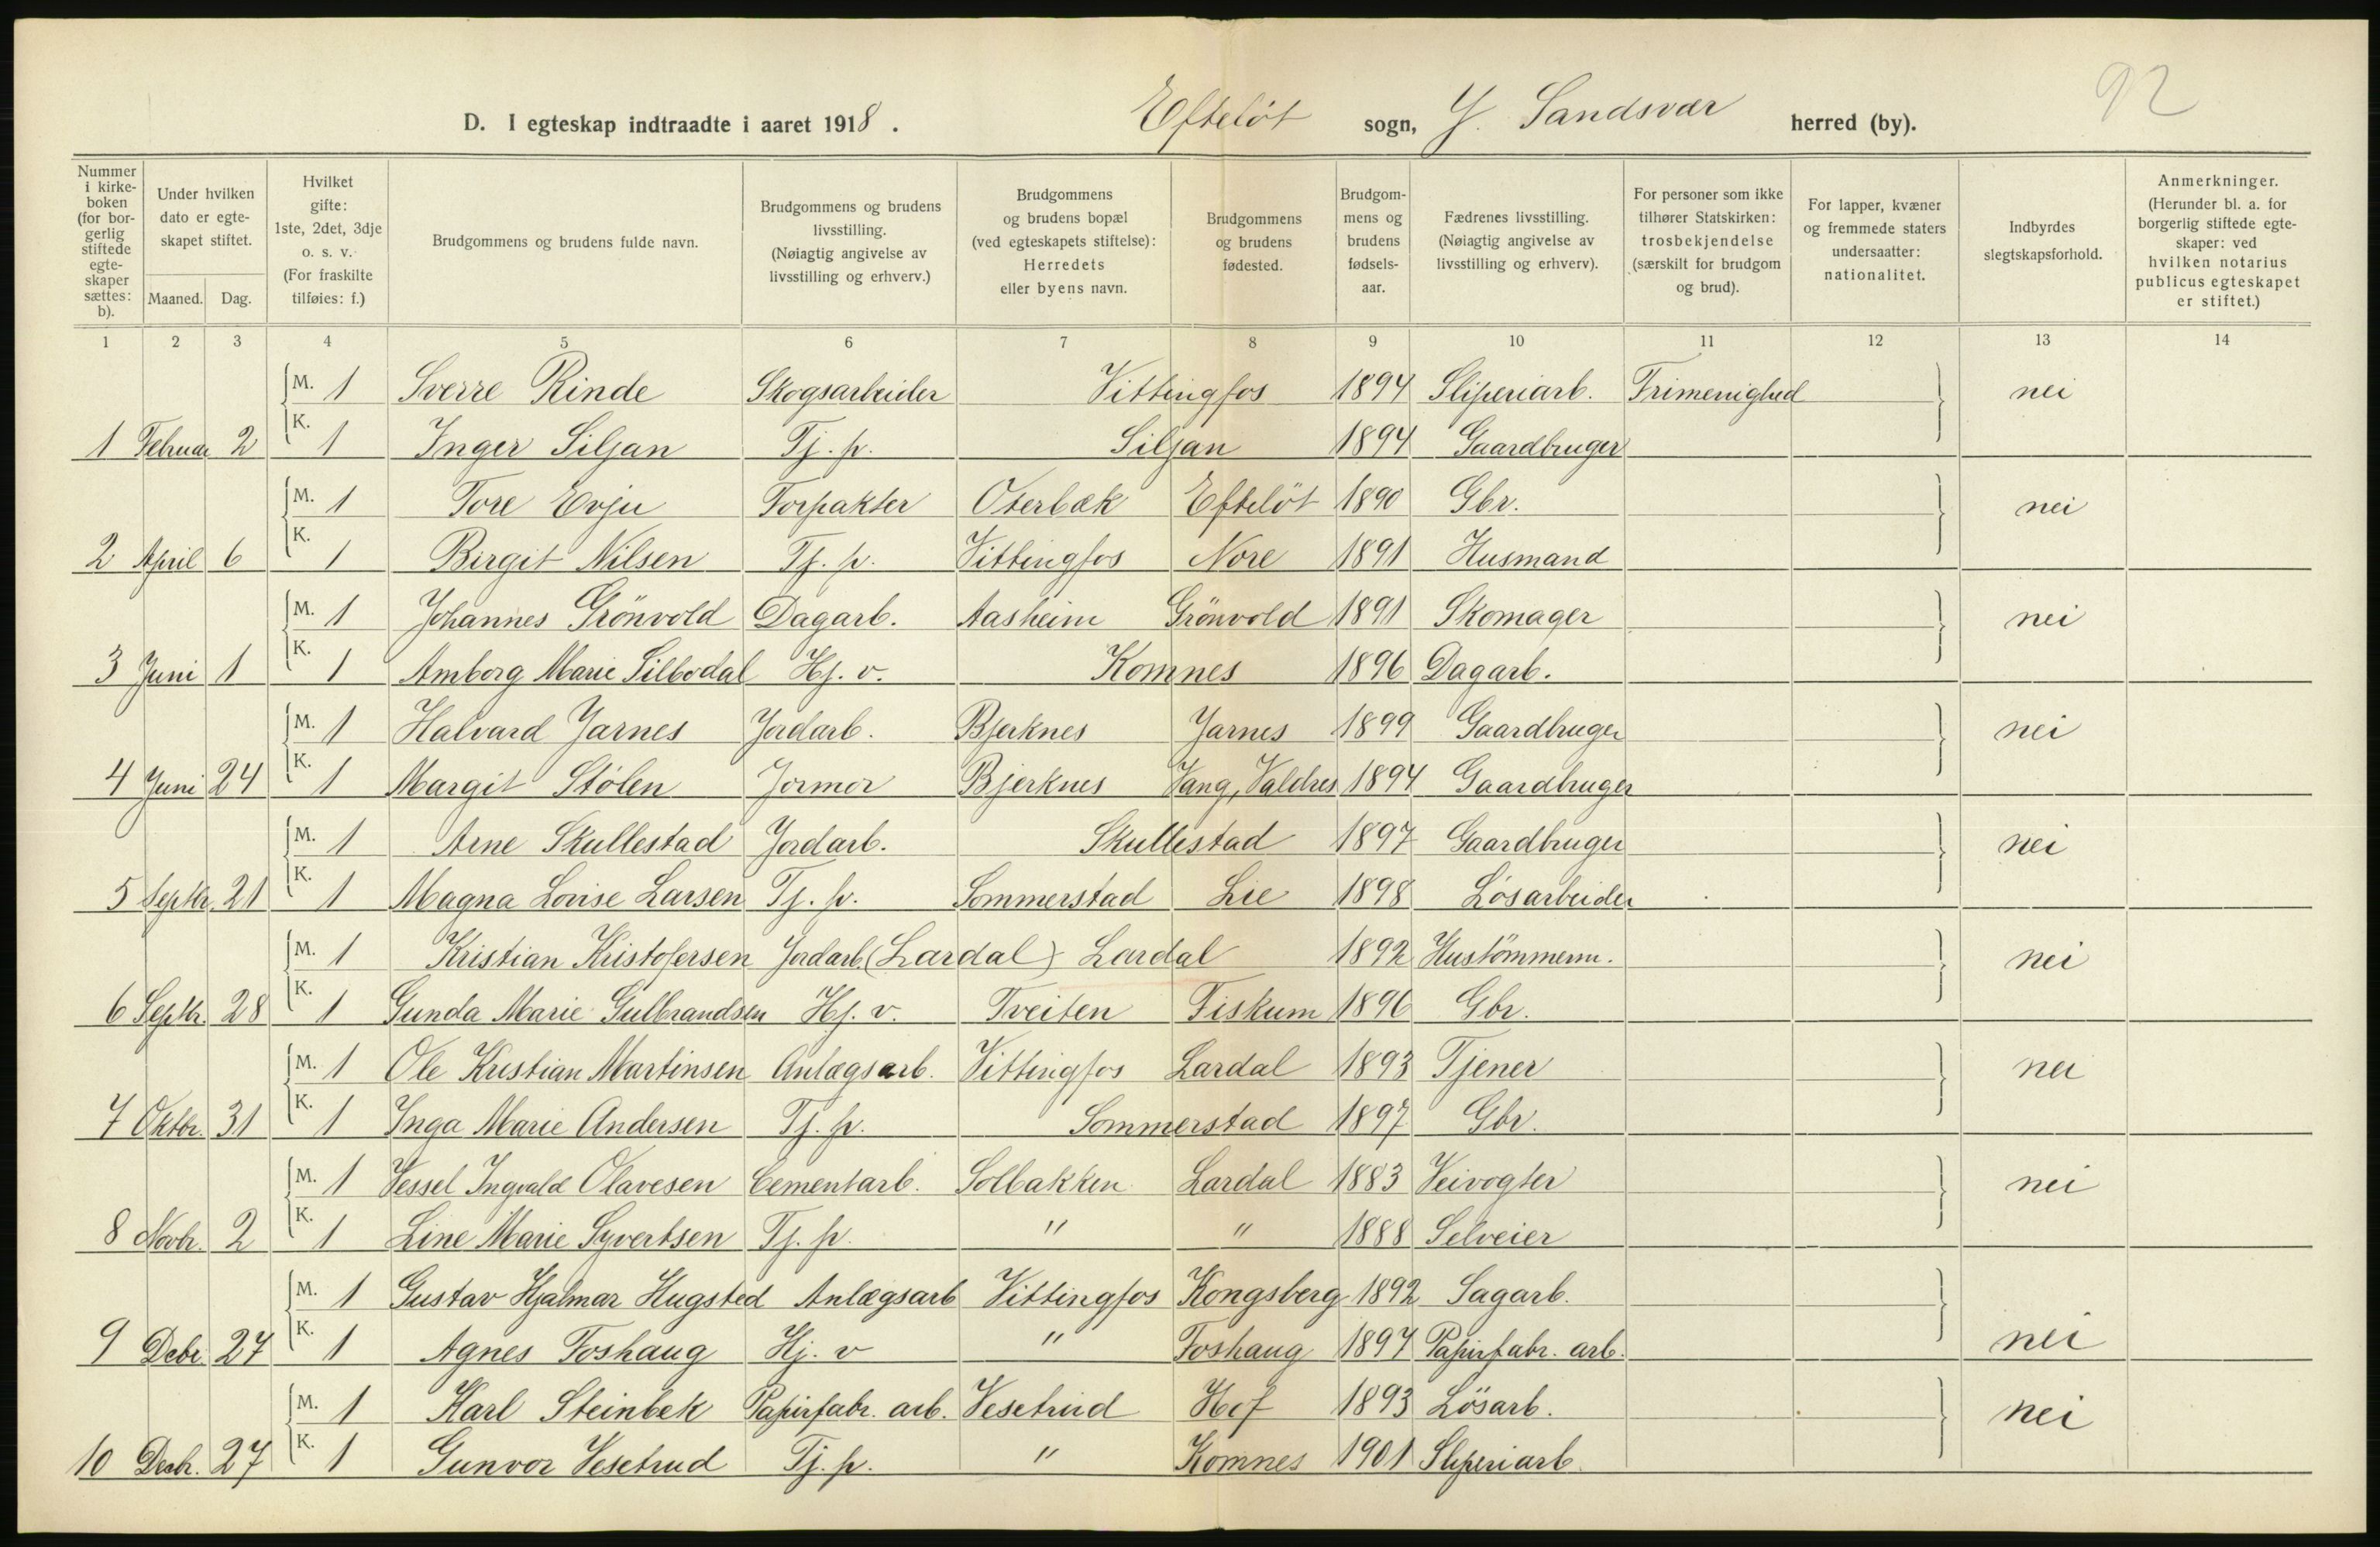 92
D. I egteskap indtraadte i aaret 1918. Efteløt sogn, Y. Sandsvær herred (by).
Nummer i kirkeboken (for borgerlig stiftede egteskaper sættes: b).
Under hvilken dato er egteskapet stiftet.
Maaned. Dag.
Hvilket gifte: 1ste, 2det, 3dje o. s. v. (For fraskilte tilføies: f.)
Brudgommens og brudens fulde navn.
Brudgommens og brudens livsstilling. (Nøiagtig angivelse av livsstilling og erhverv.)
Brudgommens og brudens bopæl (ved egteskapets stiftelse): Herredets eller byens navn.
Brudgommens og brudens fødested.
Brudgommens og brudens fødselsaar.
Fædrenes livsstilling. (Nøiagtig angivelse av livsstilling og erhverv).
For personer som ikke tilhører Statskirken: trosbekjendelse (særskilt for brudgom og brud).
For lapper, kvæner og fremmede staters undersaatter: nationalitet.
Indbyrdes slegtskapsforhold.
Anmerkninger. (Herunder bl. a. for borgerlig stiftede egteskaper: ved hvilken notarius publicus egteskapet er stiftet.)
1 2 3 4 5 6 7 8 9 10 11 12 13 14
M. 1 Sverre Rinde Skogsarbeider Vittingfos 1894 Sliperiarb. Frimenighed nei
1 Februar 2 K. 1 Inger Siljan Tj. p. Siljan 1894 Gaardbruger
M. 1 Tore Evju Forpakter Oterbæk Efteløt 1890 Gbr. nei
2 April 6 K. 1 Birgit Nilsen Tj. p. Vittingfos Nore 1891 Husmand
M. 1 Johannes Grönvold Dagarb. Aasheim Grönvold 1891 Skomager nei
3 Juni 1 K. 1 Amborg Marie Silbodal Hj. v. Komnes 1896 Dagarb.
M. 1 Halvard Jarnes Jordarb. Bjerknes Jarnes 1899 Gaardbruger nei
4 Juni 24 K. 1 Margit Stölen Jormor Bjerknes Vang, Valdres 1894 Gaardbruger
M. 1 Arne Skullestad Jordarb. Skullestad 1897 Gaardbruger nei
5 Septbr. 21 K. 1 Magna Lovise Larsen Tj. p. Sommerstad Lie 1898 Lösarbeider
M. 1 Kristian Kristofersen Jordarb. (Lardal) Lardal 1892 Hustömmerm. nei
6 Septbr. 28 K. 1 Gunda Marie Gulbrandsen Hj. v. Tveiten Fiskum 1896 Gbr.
M. 1 Ole Kristian Martinsen Anlægsarb. Vittingfos Lardal 1893 Tjener nei
7 Oktbr. 31 K. 1 Inga Marie Andersen Tj. p. Sommerstad 1897 Gbr.
M. 1 Vessel Ingvald Olavesen Cementarb. Solbakken Lardal 1883 Veivogter nei
8 Novbr. 2 K. 1 Line Marie Syvertsen Tj. p. " " 1888 Selveier
M. 1 Gustav Hjalmar Hugsted Anlægsarb Vittingfos Kongsberg 1892 Sagarb.
9 Debr. 27 K. 1 Agnes Foshaug Hj. v " Foshaug 1897 Papirfabr. arb. nei
M. 1 Karl Steinbek Papirfabr. arb. Vesetrud Hof 1893 Lösarb. nei
10 Decbr. 27 K. 1 Gunvor Vesetrud Tj. p. " Komnes 1901 Sliperiarb.